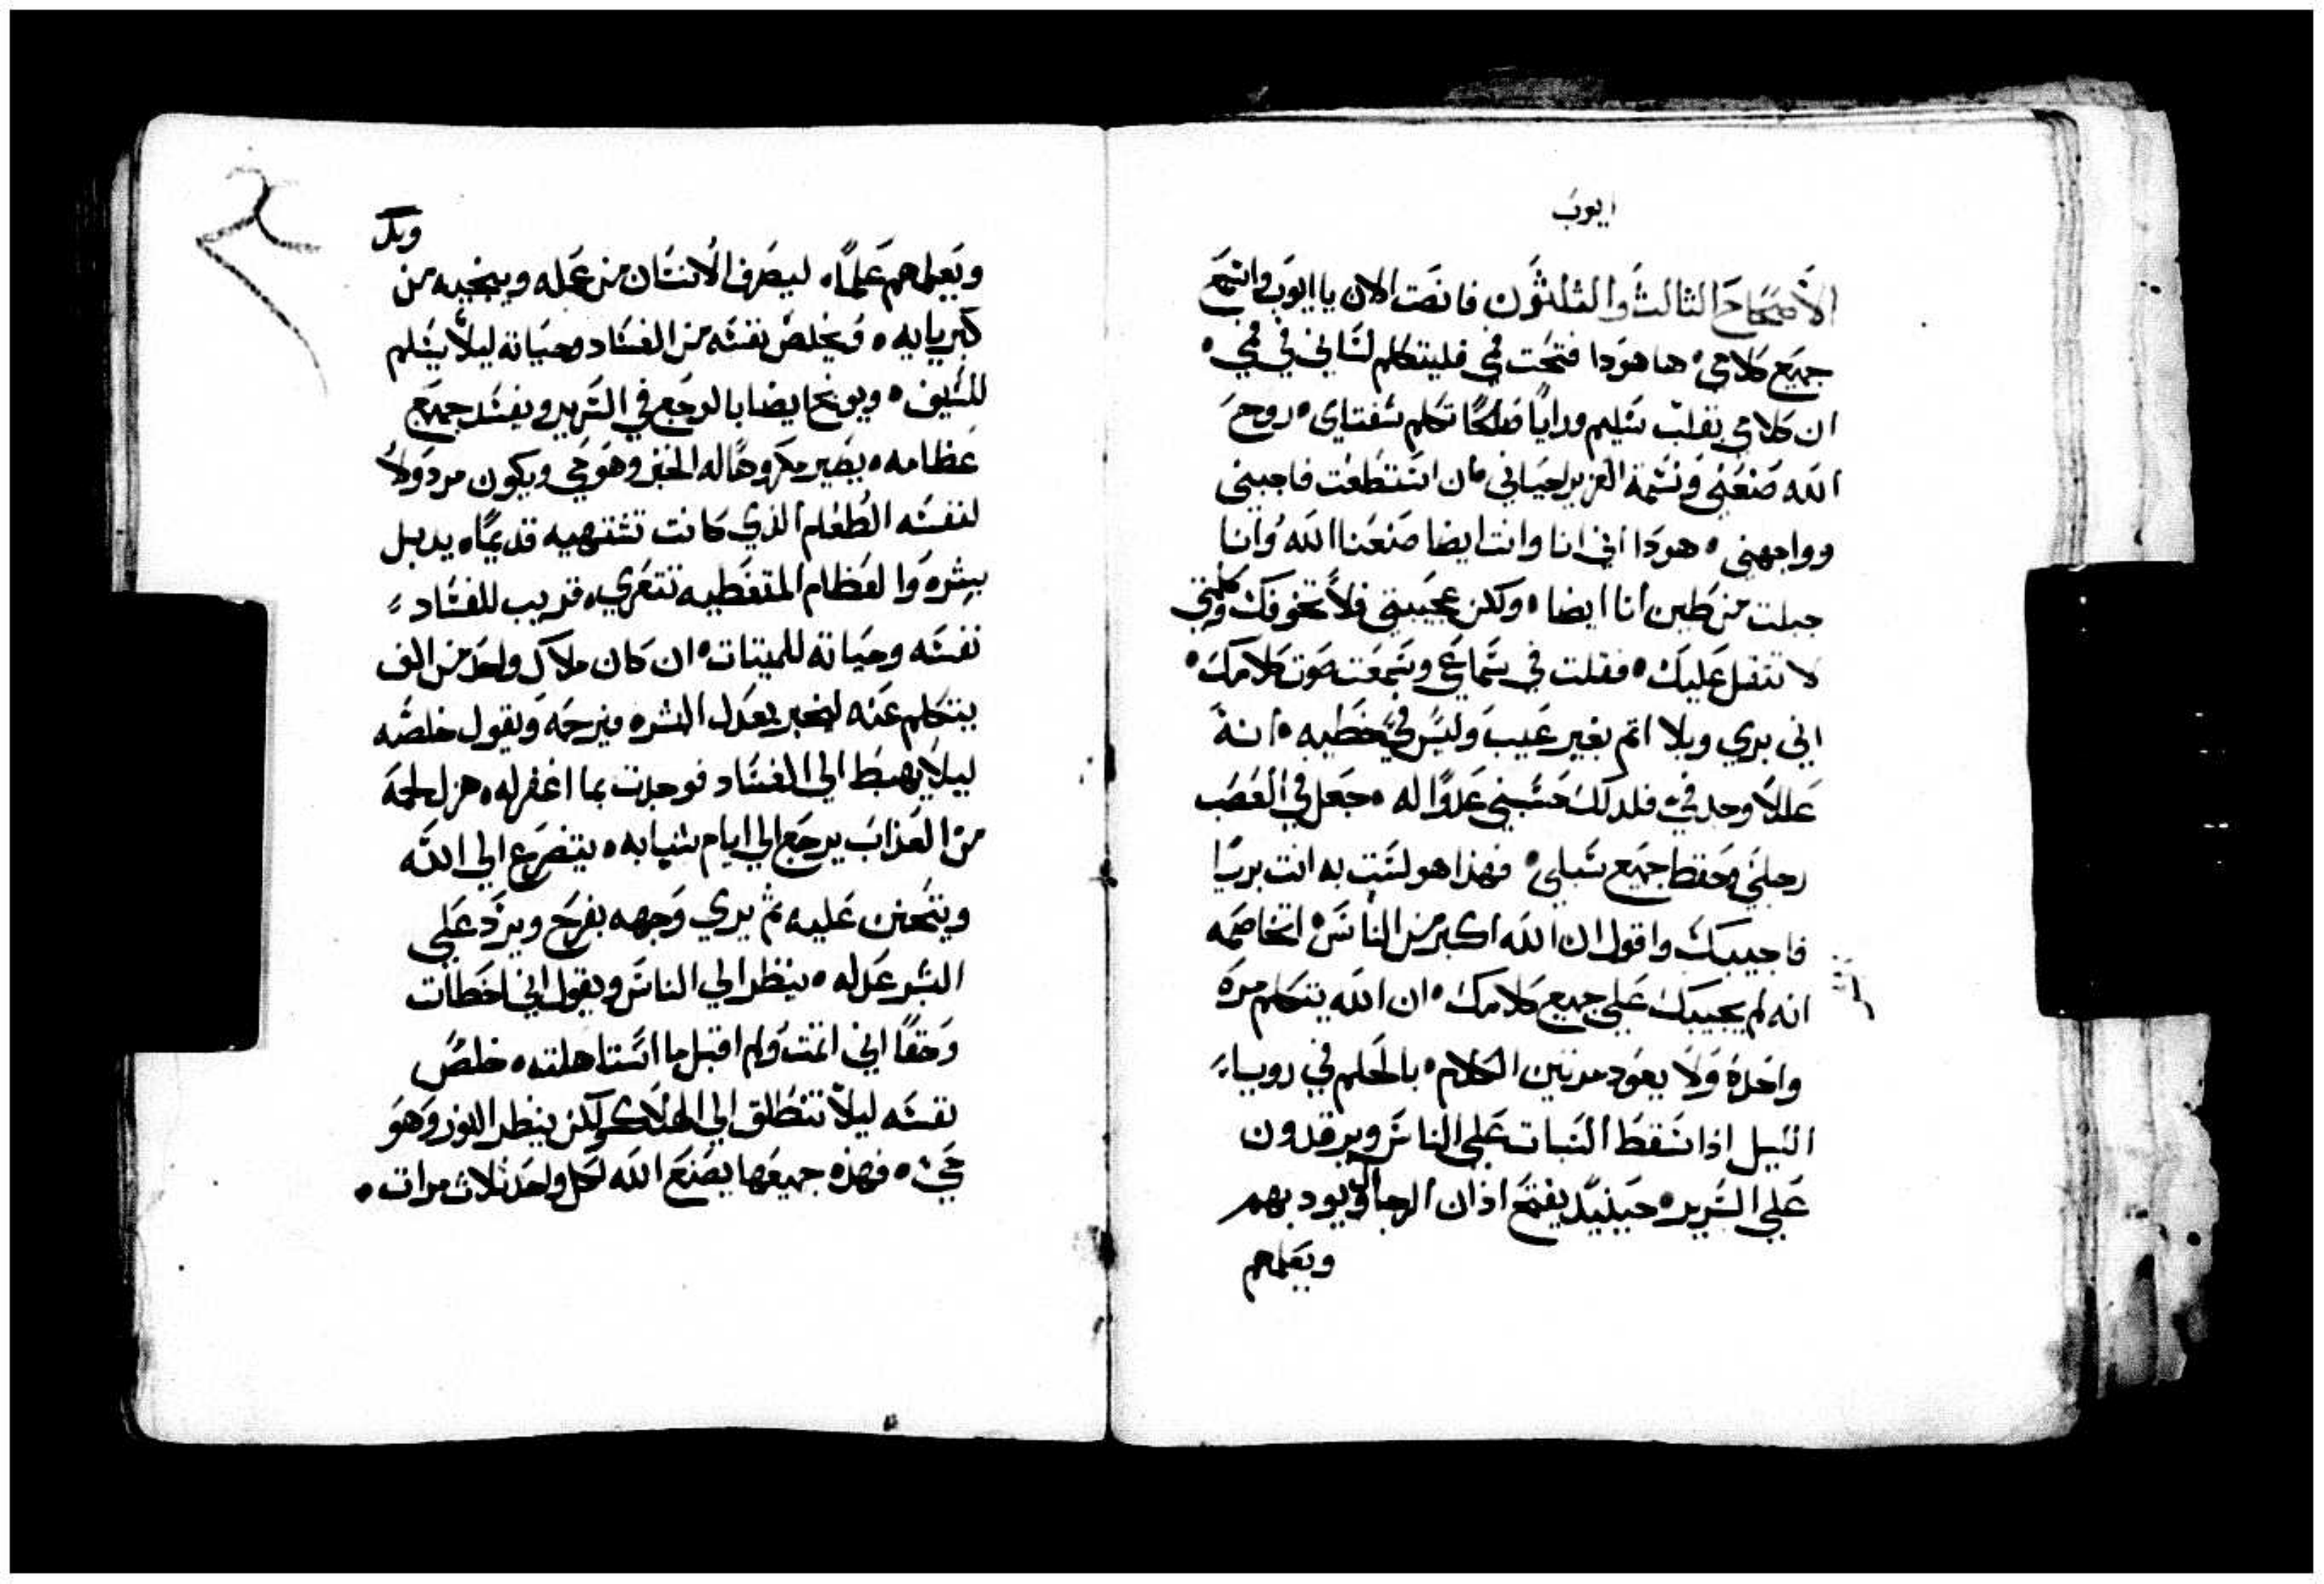 ايوب
الأصحاح الثالث والثلثون فانصت الان يا ايوب واسمع
جميع كلامي ها هودا فتحت فمي فليتكلم لساني في فمي
ان كلامي بقلب سليم ورايًا صالحًا تكلم شفتاي روح
الله صنعني ونسمة العزيز احياني فان استطعت فاجبني
وواجهني هودا اني انا وانت ايضا صنعنا الله وانا
جبلت من طين انا ايضا ولكن عجيبتي فلا تخوفك وكلمتي
لا تثقل عليك فقلت في سماعي وسمعت صوت كلامك
اني بري وبلا اثم بغير عيب وليس فيَّ خطيه انه
عللاً وجد فيَّ فلدلك حسبني عدوًا له جعل في الغصب
رجليَّ وحفظ جميع سبلي فهذا هو لست به انت بريًا
فاجيبك واقول ان الله اكبر من الناس اتخاصمه
انه لم يجيبك على جميع كلامك ان الله يتكلم مرة
واحدة ولا يعود مرتين الكلام بالحلم في روياء
الليل اذا سقط السبات على الناس ويرقدون
على السرير حينيد يفتح اذان الرجال ويودبهم
ويعلمهم
وبك
ويعلمهم علمًا ليصرف الانسان من عمله وينجيه من
كبريايه ويخلص نفسه من الفساد وحياته ليلا يسلم
للسيف ويوبخ ايضا بالوجع في السرير ويفسد جميع
عظامه يصير مكروهًا له الخبز وهو حي ويكون مردولاً
لنفسه الطعام الذي كانت تشتهيه قديمًا يدبل
بشره والعظام المتغطيه تتعري قريب للفساد
نفسه وحياته للميتات ان كان ملاك واحد من الف
يتكلم عنه ليخبر بعدل البشره فيرحمه ويقول خلصه
ليلا يهبط الي الفساد فوجدت بما اغفر له هزل لحمه
من العذاب يرجع الي ايام شبابه يتضرع الي الله
ويتحنن عليه ثم يري وجهه بفرح ويرد علي
البشر عدله ينظر الي الناس ويقول اني اخطات
وحقًا اني اثمت ولم اقبل ما استاهلته خلص
نفسه ليلا تنطلق الي الهلاك لكن ينظر النور وهو
حيّ فهذه جميعها يصنع الله لكل واحد ثلاث مرات